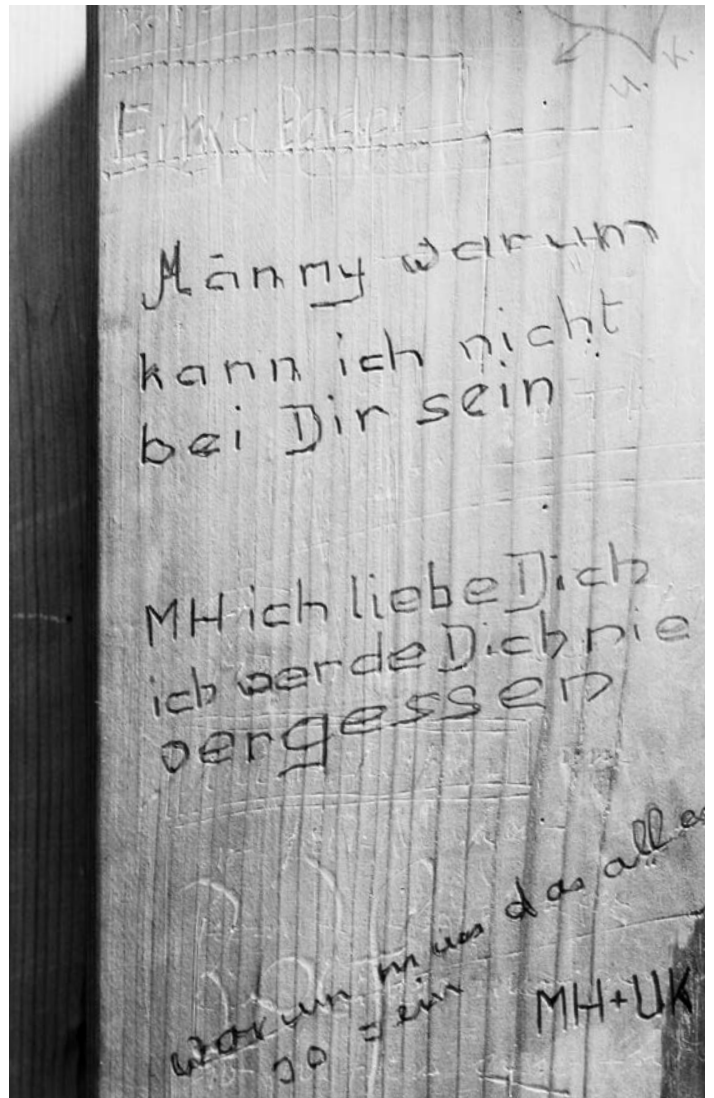 U. K.
Männy warum
kann ich nicht
bei Dir sein
MH ich liebe Dich
ich werde Dich nie
vergessen
warum mus das alles
so sein
MH+UK